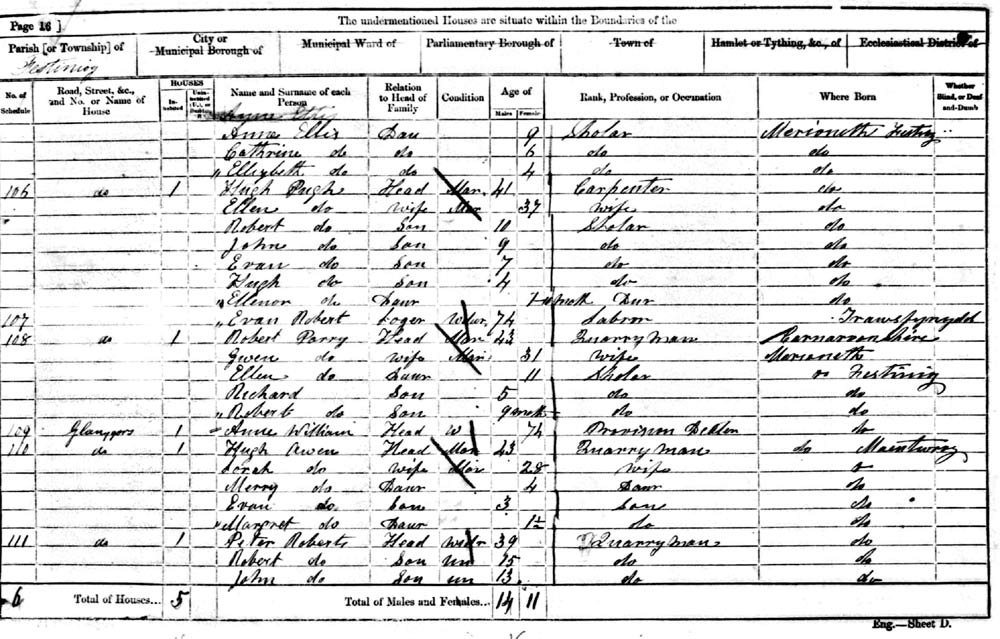 Page 16 ]
The undermentioned Houses are situate within the Boundaries of the
Parish [or Township] of City or Municipal Borough of Municipal Ward of Parliamentary Borough of Town of Hamlet or Tything, &c., of Ecclesiastical District of
Festiniog
No. of Schedule Road, Street, &c., and No. or Name of House HOUSES Inhabited Name and Surname of each Person Relation to Head of Family Condition Age of Males Females Rank, Profession, or Occupation Where Born Whether Blind, or Deaf-and-Dumb
Anne Ellis Dau 9 Sholar Merioneth Festiniog
Cathrine do do 6 do do
Ellizybeth do do 4 do do
106 do 1 Hugh Pugh Head Mar 41 Carpenter do
Ellen do wife Mar 37 wife do
Robert do Son 10 Sholar do
John do Son 9 do do
Evan do Son 7 do do
Hugh do Son 4 do do
Ellenor do Daur Dur do
107 Evan Robert Loger Widwr 74 Labror Trawsfynydd
108 do 1 Robert Parry Head Mar 43 Quarryman Carnarvonshire
Gwen do wife Mar 31 wife Merioneth
Ellen do Daur 11 Sholar Festiniog
Richard Son 5 do do
Robert do Son 9 month do do
109 Glanypors 1 Anne William Head W 74 Provison do
110 do 1 Hugh Owen Head Mar 43 Quarryman do Maentwrog
Sorah do wife Mar 28 wife
Merry do Daur 4 Daur do
Evan do Son 3 Son do
Margret do Daur 1½ do do
111 do 1 Peter Roberts Head widr 39 Quarryman do
Robert do Son un 15 do do
John do Son un 13 do do
6 Total of Houses... 5 Total of Males and Females... 14 11
Eng.—Sheet D.